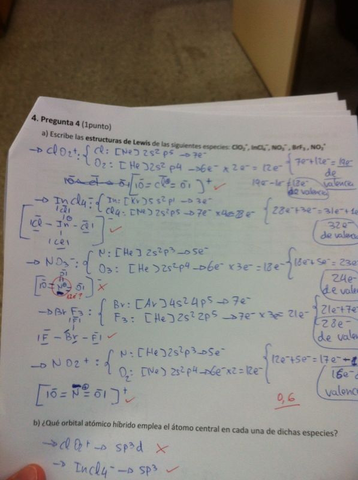 4. Pregunta 4 (1punto)
a) Escribe las estructuras de Lewis de las siguientes especies: ClO₂⁺, InCl₄⁻, NO₃⁻, BrF₃, NO₂⁺
→ ClO₂⁺: { Cl: [Ne] 2s² p⁵ → 7e⁻
O₂: [He] 2s² p⁴ → 6e⁻ × 2e⁻ = 12e⁻ { 7e⁻ + 12e⁻ = 19e⁻
19e⁻ - 1e⁻ = 18e⁻ de valencia
[ |O = Cl = O| ]⁺ ✓
→ InCl₄⁻: { In: [Kr] 5s² p¹ → 3e⁻
Cl₄: [Ne] 2s² p⁵ → 7e⁻ × 4 = 28e⁻ { 28e⁻ + 3e⁻ = 31e⁻
32e⁻ de
[ |Cl - In - Cl| ] ✓
→ NO₃⁻: { N: [He] 2s² p³ → 5e⁻
O₃: [He] 2s² p⁴ → 6e⁻ × 3e⁻ = 18e⁻ { 18e⁻ + 5e⁻ = 23e⁻
24e⁻ de
→ Br F₃: { Br: [Ar] 4s² 4p⁵ → 7e⁻
F₃: [He] 2s² 2p⁵ → 7e⁻ × 3e⁻ 21e⁻ { 21e⁻ + 7e⁻
28e⁻ de valenc
|F - Br - F| ✓
→ NO₂⁺: { N: [He] 2s² p³ → 5e⁻
O₂: [He] 2s² p⁴ → 6e⁻ × 2 = 12e⁻ { 12e⁻ + 5e⁻ = 17e⁻
16e⁻ de valenc
[ |O = N = O| ]⁺ ✓
0,6
b) ¿Qué orbital atómico híbrido emplea el átomo central en cada una de dichas especies?
→ ClO₂⁺ → sp³d ×
→ InCl₄⁻ → sp³ ✓